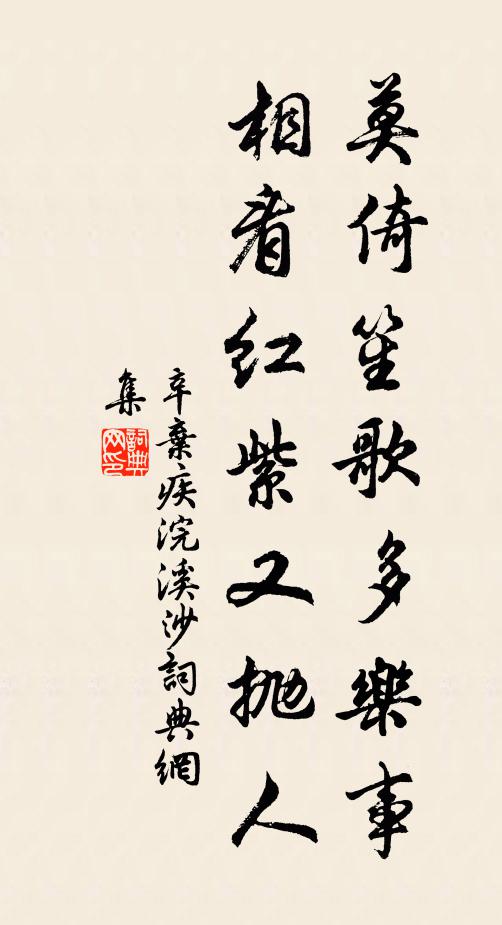 莫倚笙歌多樂事
相看紅紫又拋人
辛棄疾浣溪沙詞典網
集
詞典
网印